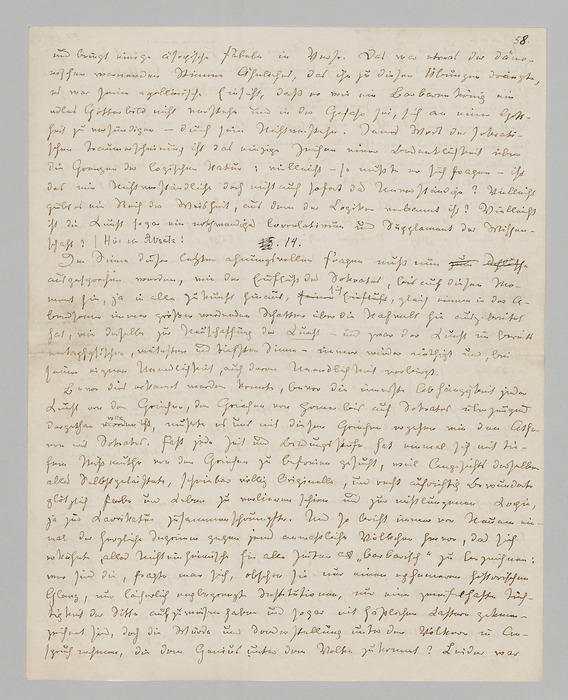 58
und bringt einige äsopische Fabeln in Verse. Das war etwas der dämo-
nischen warnenden Stimme Ähnliches, das ihn zu diesen Übungen drängte,
es war seine apollinische Einsicht, daß er wie ein Barbarenkönig ein
edles Götterbild nicht verstehe und in der Gefahr sei, sich an einer Gott-
heit zu versündigen — durch sein Nichtverstehn. Jenes Wort der sokrati-
schen Traumerscheinung ist das einzige Zeichen einer Bedenklichkeit über
die Grenzen der logischen Natur: vielleicht — so mußte er sich fragen — ist
das mir Nichtverständliche doch nicht auch sofort das Unverständige? Vielleicht
giebt es ein Reich der Weisheit, aus dem der Logiker verbannt ist? Vielleicht
ist die Kunst sogar ein nothwendiges Correlativum und Supplement der Wissen-
schaft? | Hier
14.
Im Sinne dieser letzten ahnungsvollen Fragen muß nun
ausgesprochen werden, wie der Einfluß des Sokrates, bis auf diesen Mo-
ment hin, ja in alle Zukunft hinaus, sich, gleich einem in der A-
bendsonne immer größer werdenden Schatten über die Nachwelt hin ausgebreitet
hat, wie derselbe zur Neuschaffung der Kunst — und zwar der Kunst im bereits
metaphysischen, weitesten und tiefsten Sinne — immer wieder nöthigt und, bei
seiner eignen Unendlichkeit, auch deren Unendlichkeit verbürgt.
Bevor dies erkannt werden konnte, bevor die innerste Abhängigkeit jeder
Kunst von den Griechen, den Griechen von Homer bis auf Sokrates überzeugend
dargethan war, mußte es uns mit diesen Griechen ergehen wie den Athe-
nern mit Sokrates. Fast jede Zeit und Bildungsstufe hat einmal sich mit tie-
fem Mißmuthe von den Griechen zu befreien gesucht, weil Angesichts derselben
alles Selbstgeleistete, scheinbar völlig Originelle, und recht aufrichtig Bewunderte
plötzlich Farbe und Leben zu verlieren schien und zur mißlungenen Copie,
ja zur Karikatur zusammenschrumpfte. Und so bricht immer von Neuem ein-
mal der herzliche Ingrimm gegen jenes anmaaßliche Völkchen hervor, das sich
erkühnte, alles Nichteinheimische für alle Zeiten als „barbarisch“ zu bezeichnen:
wer sind die, fragte man sich, obschon sie nur einen ephemeren historischen
Glanz, nur lächerlich engbegrenzte Institutionen, nur eine zweifelhafte Tüch-
tigkeit der Sitte aufzuweisen haben und sogar mit häßlichen Lastern gekenn-
zeichnet sind, doch die Würde und Sonderstellung unter den Völkern in An-
spruch nehmen, die dem Genius unter dem Volke zukommt? Leider war